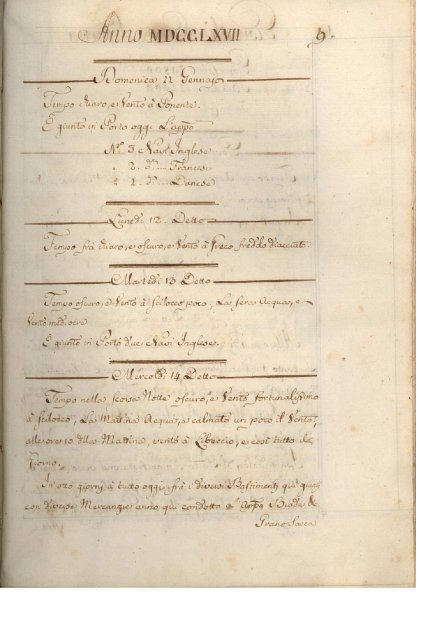 Anno MDCCLXVII 9.
Domenica 11 Gennajo
Tempo chiaro, e Vento à Ponente.
È giunto in Porto oggi L'appo
N.o 3 Navi Inglese
" 2. d.i Francesi
" 1. d.a Danese
Lunedì 12. Detto
Tempo frà chiaro, e oscuro, e Vento à Greco freddo
Martedì 13 Detto
Tempo oscuro, e Vento à scilocco poco, La sera Acqua, e
Vento mediocre
È giunto in Porto due Navi Inglese.
Mercoldì 14 Detto
Tempo nella scorsa Notte oscuro, e Vento fortunalissimo
à scilocco, La Mattina Acqua, e calmato un poco il Vento,
alle ore 10 della Mattina vento à Libeccio, e così tutto il
Giorno.
In otto giorni à tutto oggi frà i diversi Bastimenti qui giunti
con diverse Mercanzie anno qui condotto Biada &
Grano Sacca